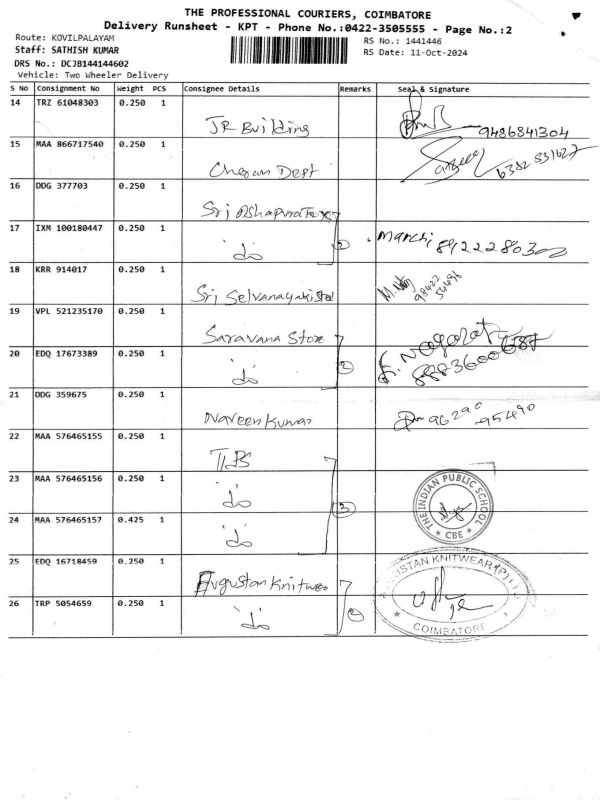 THE PROFESSIONAL COURIERS, COIMBATORE
Delivery Runsheet - KPT - Phone No.:0422-3505555 - Page No.:2
Route: KOVILPALAYAM
RS No.: 1441446
Staff: SATHISH KUMAR
RS Date: 11-Oct-2024
DRS No.: DCJB144144602
Vehicle: Two Wheeler Delivery
S No Consignment No Weight PCS Consignee Details Remarks Seal & Signature
14 TRZ 61048303 0.250 1
JR Building 9486841304
15 MAA 866717540 0.250 1
Cheran Dept 6382531627
16 DDG 377703 0.250 1
Sri Ashapura Tex
17 IXM 100180447 0.250 1
do 2
18 KRR 914017 0.250 1
Sri Selvanayaki Steel
19 VPL 521235170 0.250 1
Saravana Store
20 EDQ 17673389 0.250 1
do 2
21 DDG 359675 0.250 1
Naveen Kumar 96290
95490
22 MAA 576465155 0.250 1
TIPS
23 MAA 576465156 0.250 1
do 3
24 MAA 576465157 0.425 1
do
THE INDIAN PUBLIC SCHOOL
* CBE *
25 EDQ 16718459 0.250 1
Augustan Knitwear
26 TRP 5054659 0.250 1
do 2
KNITWEAR (P) LTD
* COIMBATORE *